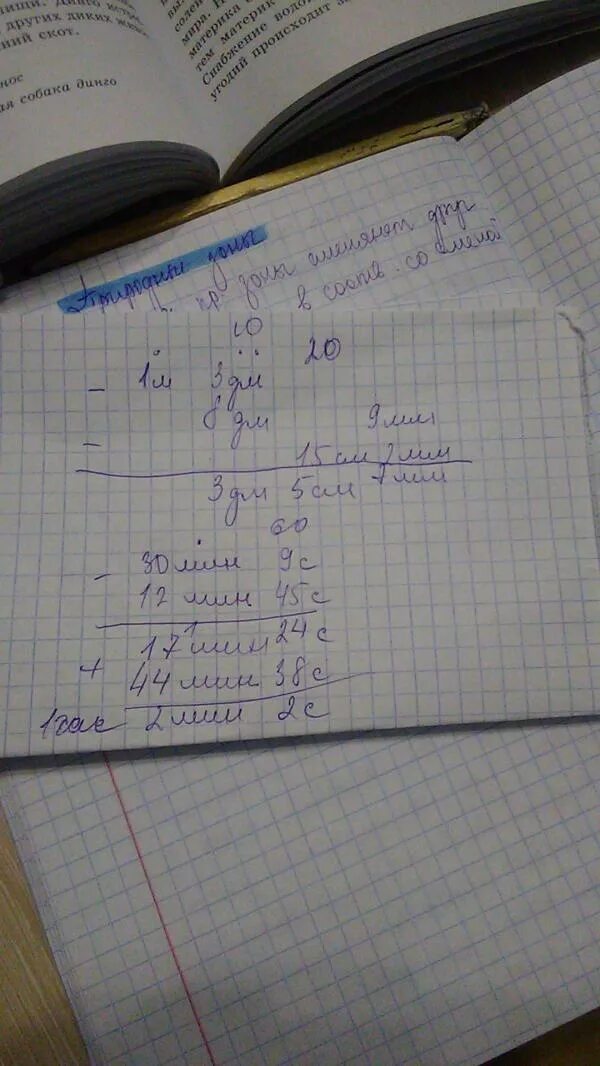 других диких живо
ний скот.
нос
ая собака динго
мира. П
материка с
тем материк
Снабжение водой
угодий происходит за
Природные зоны
зоны сменяют друг
в соотв. со сменой
10
20
- 1м 3дм
8 дм 9мм
-
15см 2мм
3дм 5см 7мм
60
- 30мин 9с
12 мин 45с
1
17 мин 24с
+ 44мин 38с
1час 2мин 2с